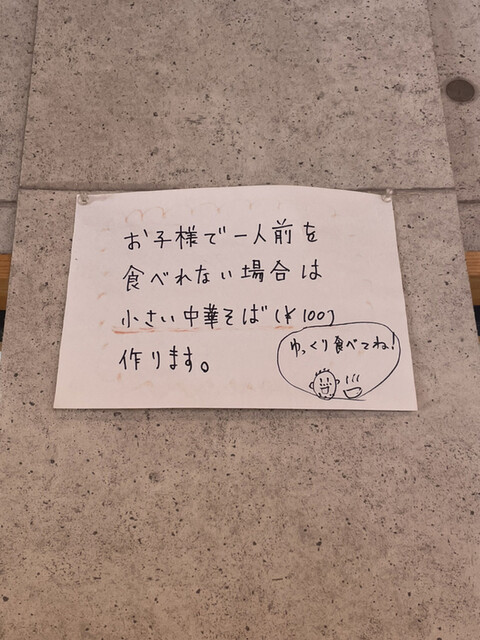 お子様で一人前を
食べれない場合は
小さい中華そば(¥100)
作ります。
ゆっくり食べてね!